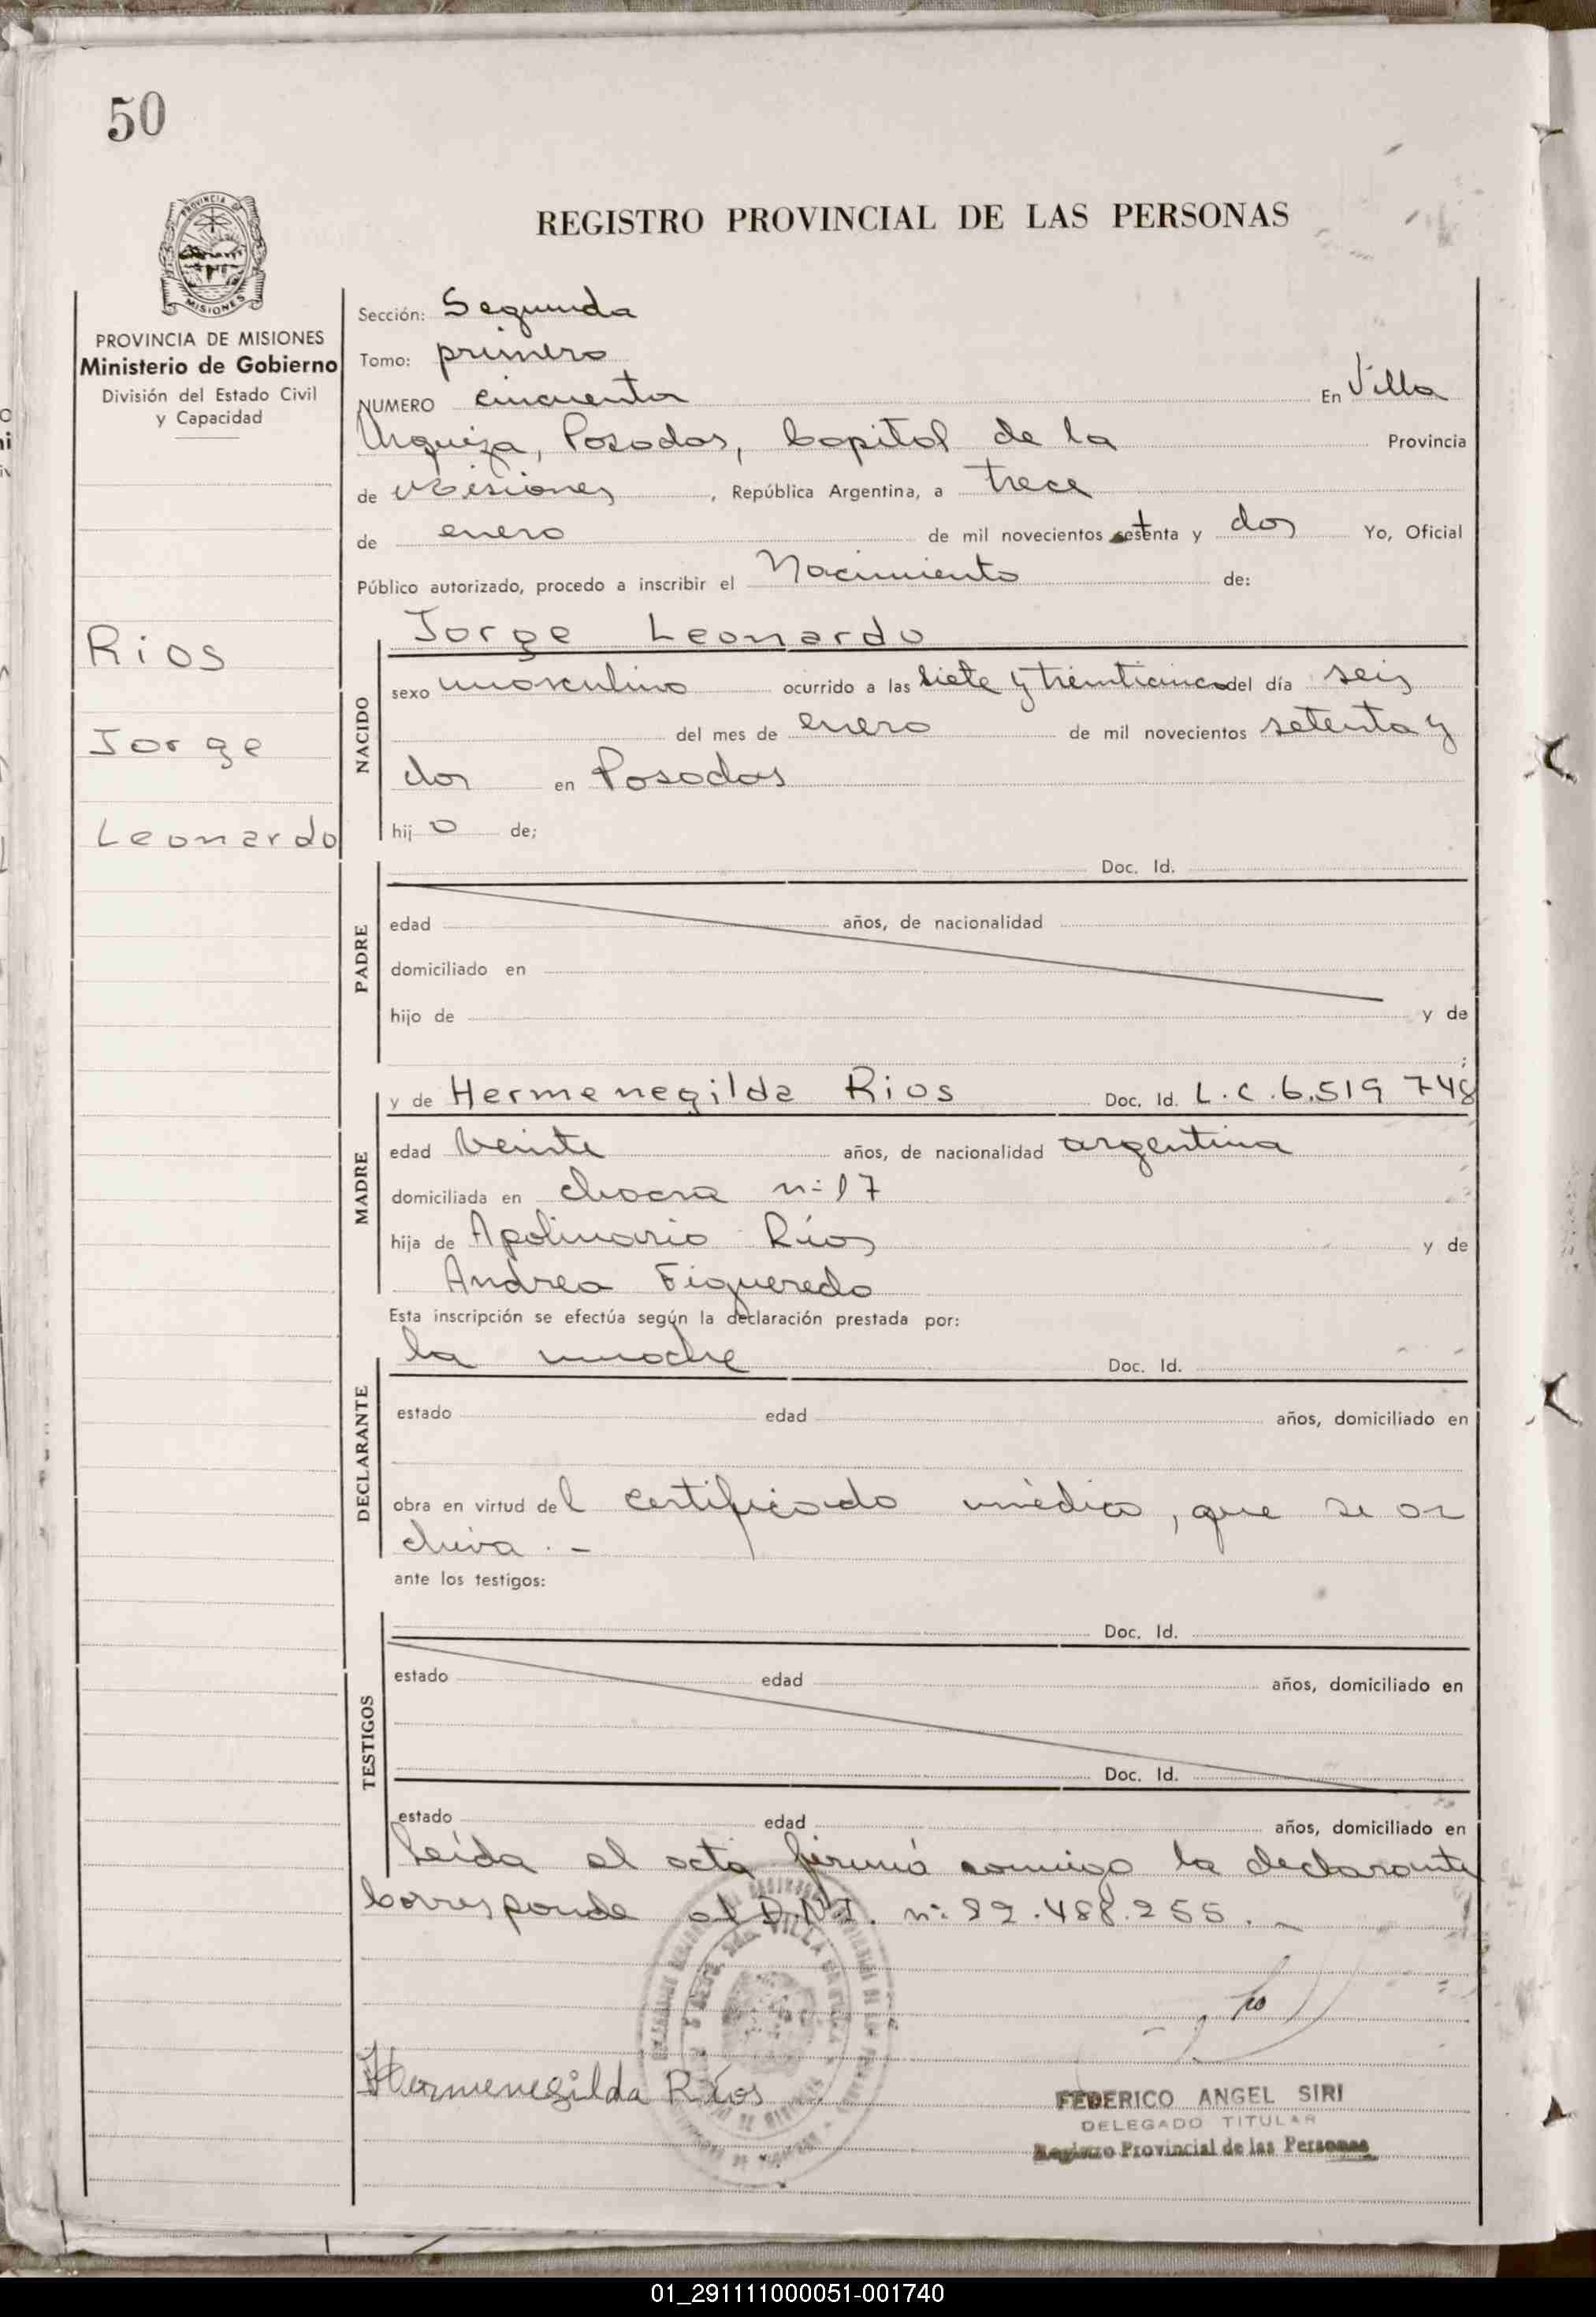 50
PROVINCIA DE
MISIONES
REGISTRO PROVINCIAL DE LAS PERSONAS
PROVINCIA DE MISIONES
Ministerio de Gobierno
División del Estado Civil
y Capacidad
Rios
Jorge
Leonardo
Sección: Segunda
Tomo: primero
NUMERO cincuenta En Villa
Urquiza, Posadas, Capital de la Provincia
de Misiones, República Argentina, a trece
de enero de mil novecientos setenta y dos Yo, Oficial
Público autorizado, procedo a inscribir el Nacimiento de:
NACIDO
Jorge Leonardo
sexo masculino ocurrido a las siete y treinticinco del día seis
del mes de enero de mil novecientos setenta y
dos en Posadas
hijo de;
PADRE
Doc. Id.
edad años, de nacionalidad
domiciliado en
hijo de y de
;
MADRE
y de Hermenegilda Rios Doc. Id. L.C.6.519 748
edad veinte años, de nacionalidad argentina
domiciliada en chacra n=17
hija de Apolinario Ríos y de
Andrea Figueredo
Esta inscripción se efectúa según la declaración prestada por:
DECLARANTE
la madre Doc. Id.
estado edad años, domiciliado en
obra en virtud del certificado médico, que se ar
chiva.-
ante los testigos:
TESTIGOS
Doc. Id.
estado edad años, domiciliado en
Doc. Id.
estado edad años, domiciliado en
Leída el acta firmó conmigo la declarante
Corresponde al D.N.I. n= 22.488.255.-
Hermenegilda Ríos
FEDERICO ANGEL SIRI
DELEGADO TITULAR
Registro Provincial de las Personas
01_291111000051-001740